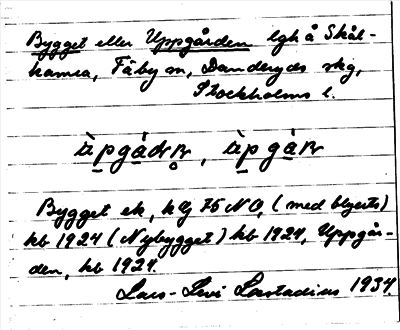 Bygget eller Uppgården lgh å Skål-
hamra, Täby sn, Danderyds skg,
Stockholms l.
ùpgàdn, ùpgàn
Bygget ek, hbl 75 NO, (med blyerts)
kb 1924 (Nybygget) kb 1924, Uppgår-
den, kb 1924.
Lars-Levi Læstadius 1934.